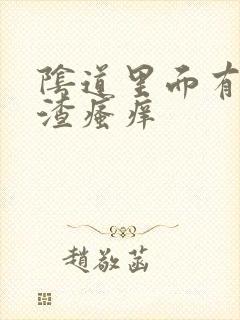 陰道里而有
渣瘙痒
趙敬菡